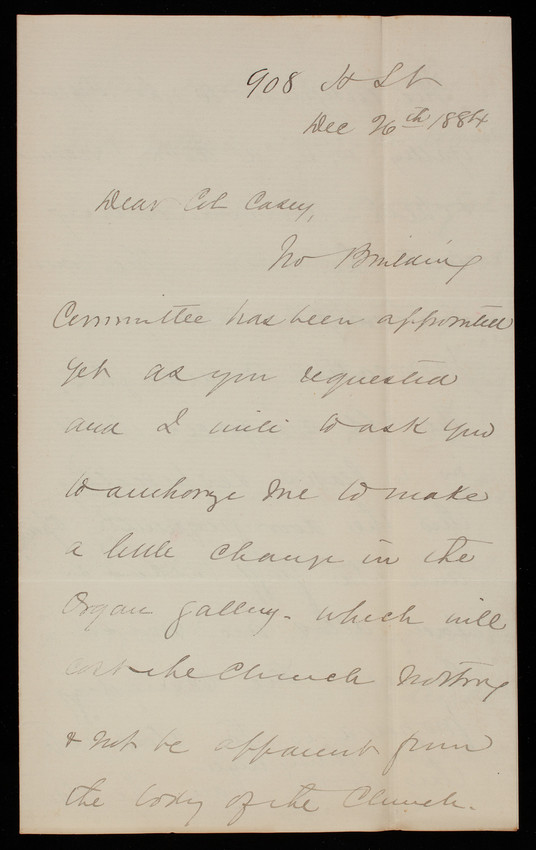 908 H St
Dec 26th 1884
Dear Col Casey,
No Building
Committee has been appointed
yet as you requested
and I write to ask you
to authorize me to make
a little change in the
Organ gallery. which will
cost the Church nothing
& not be apparent from
the body of the Church.